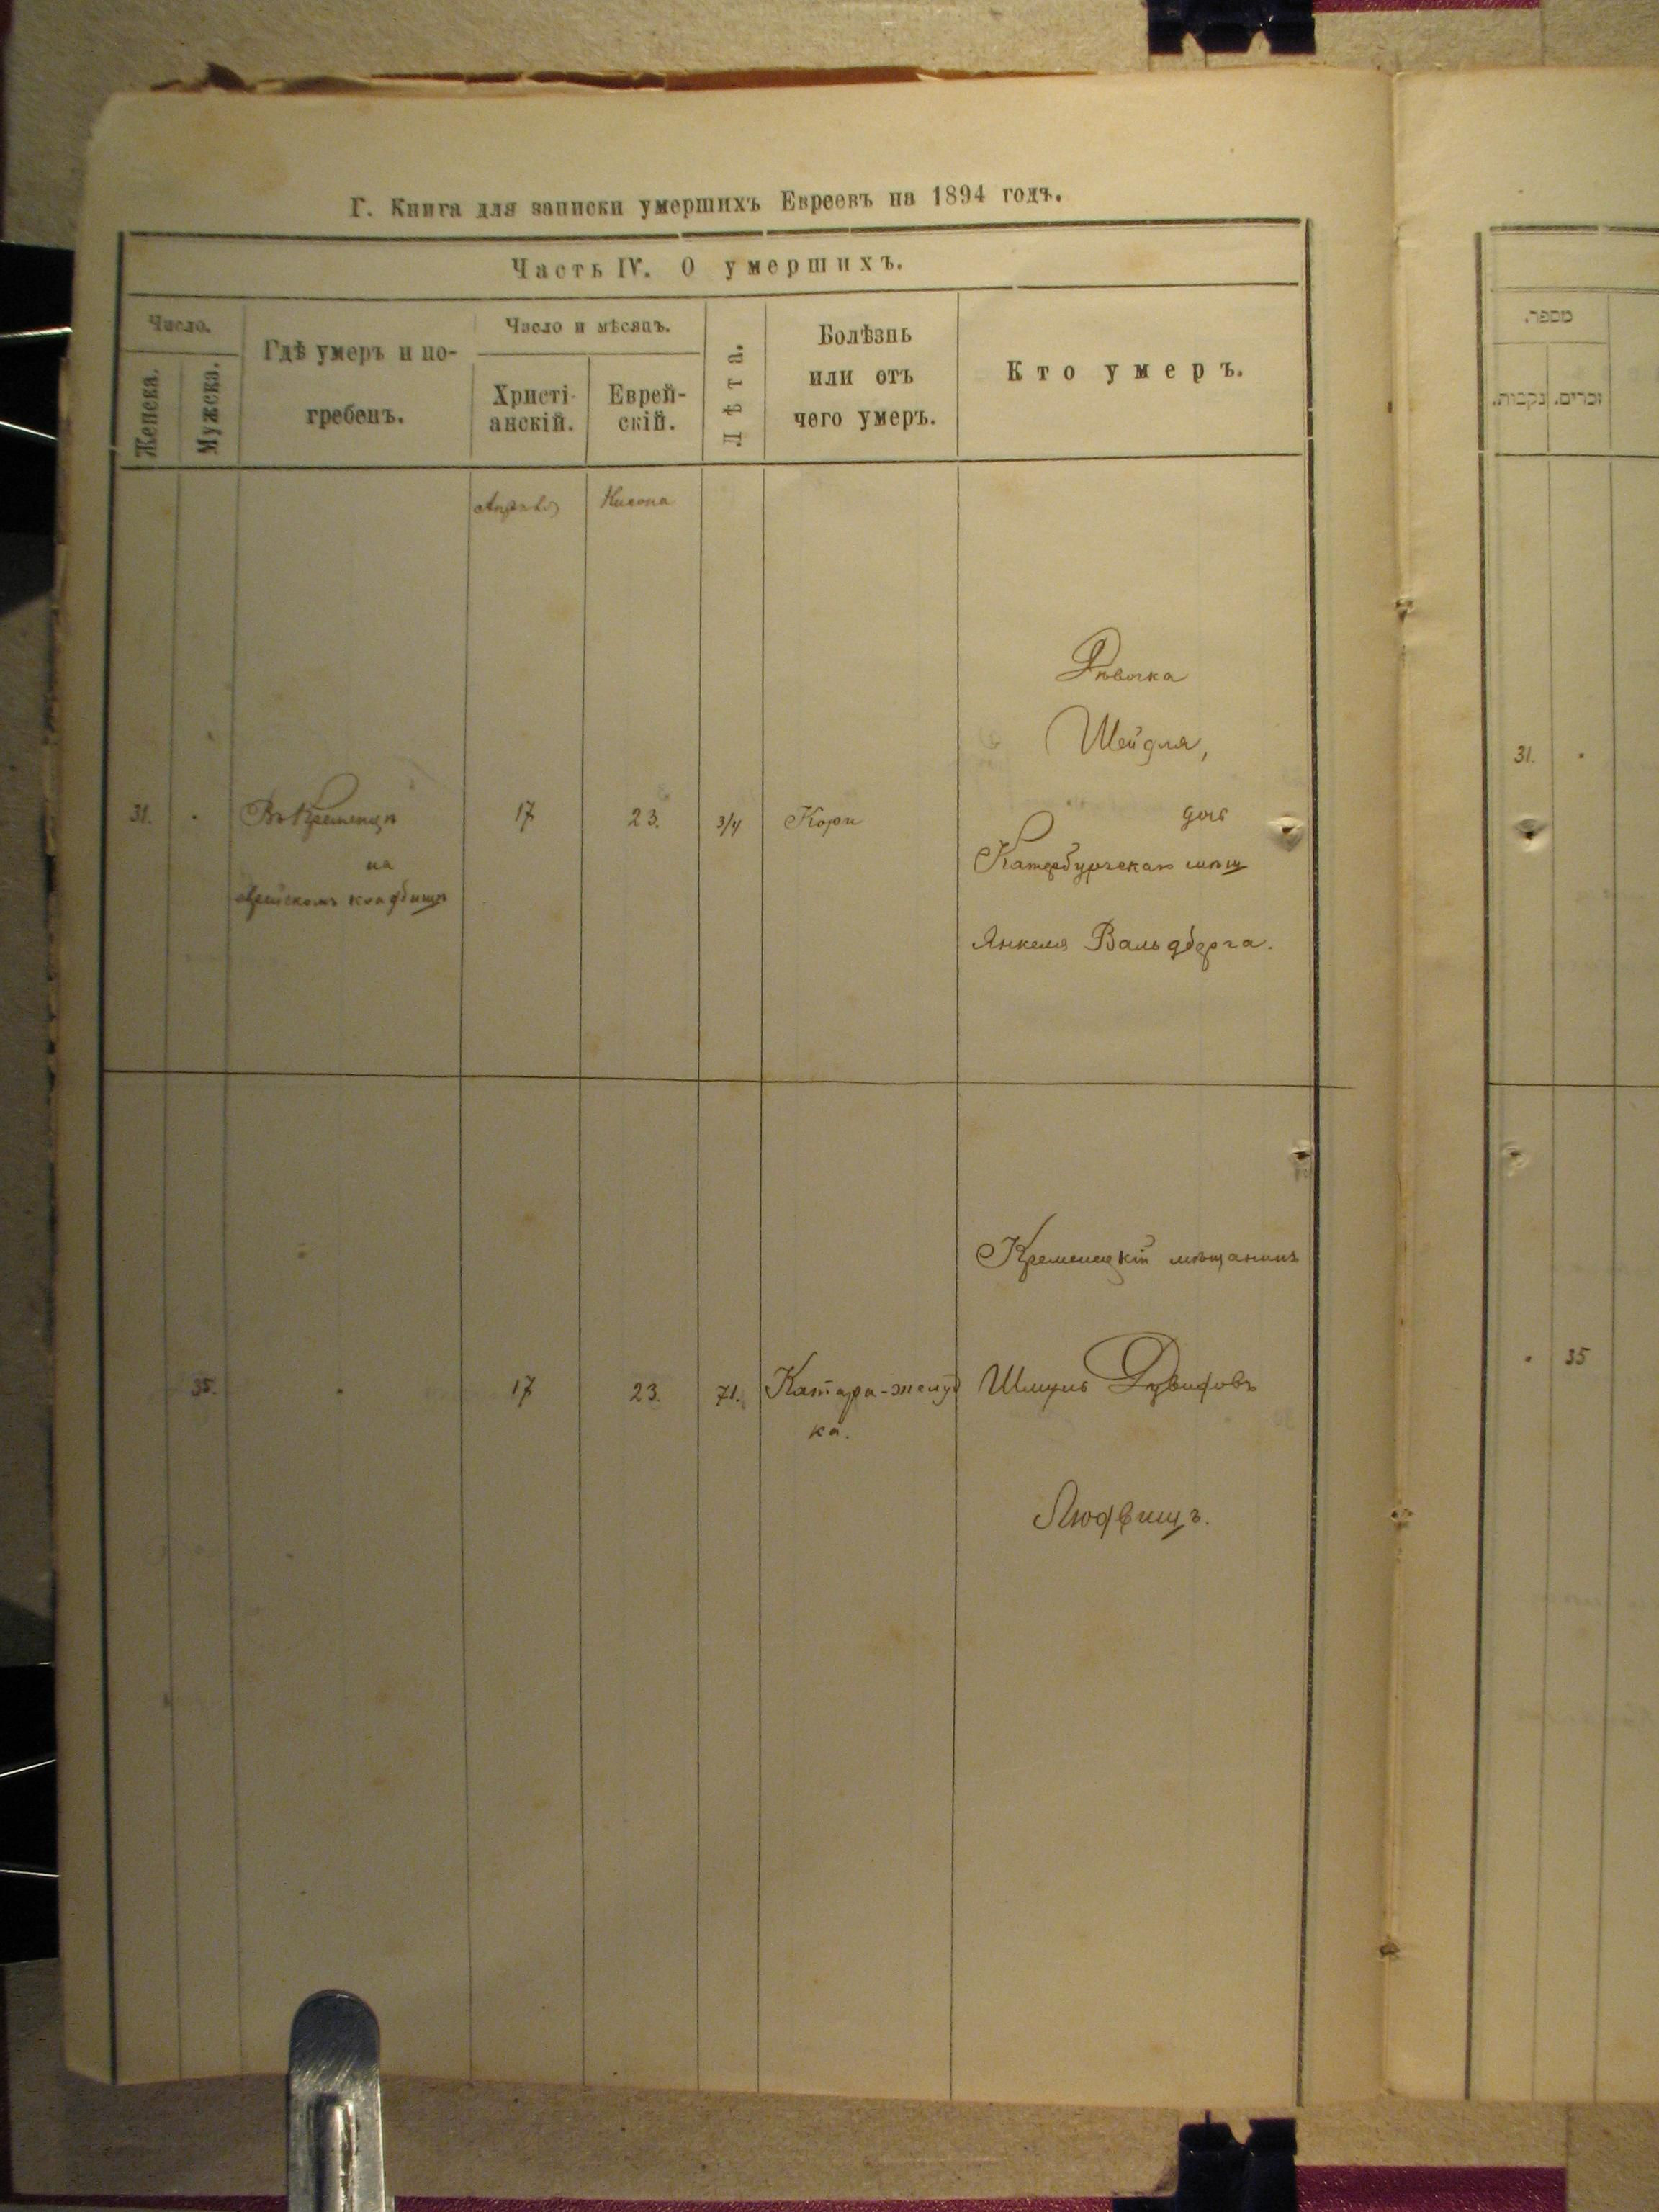 Г. Книга для записки умершихъ Евреевъ на 1894 годъ.
Часть IV. О умершихъ.
Число.
Женска.
Мужска.
Гдѣ умеръ и по-
гребенъ.
Число и мѣсяцъ.
Христі-
анскій.
Еврей-
скій.
Лѣта.
Болѣзнь
или отъ
чего умеръ.
Кто умеръ.
Апрѣль
Нисона
Дѣвочка
Шейдля,
31.
Въ Кременцѣ
на
еврейскомъ кладбищѣ
17
23.
3/4
Кори
дочь
Катербургскаго мѣщ
Янкеля Вальдберга.
Кременецкій мѣщанинъ
35.
17
23.
71.
Катара-желуд
ка.
Шмуль Дувидовъ
מספר.
נקבות.
זכרים.
31.
35